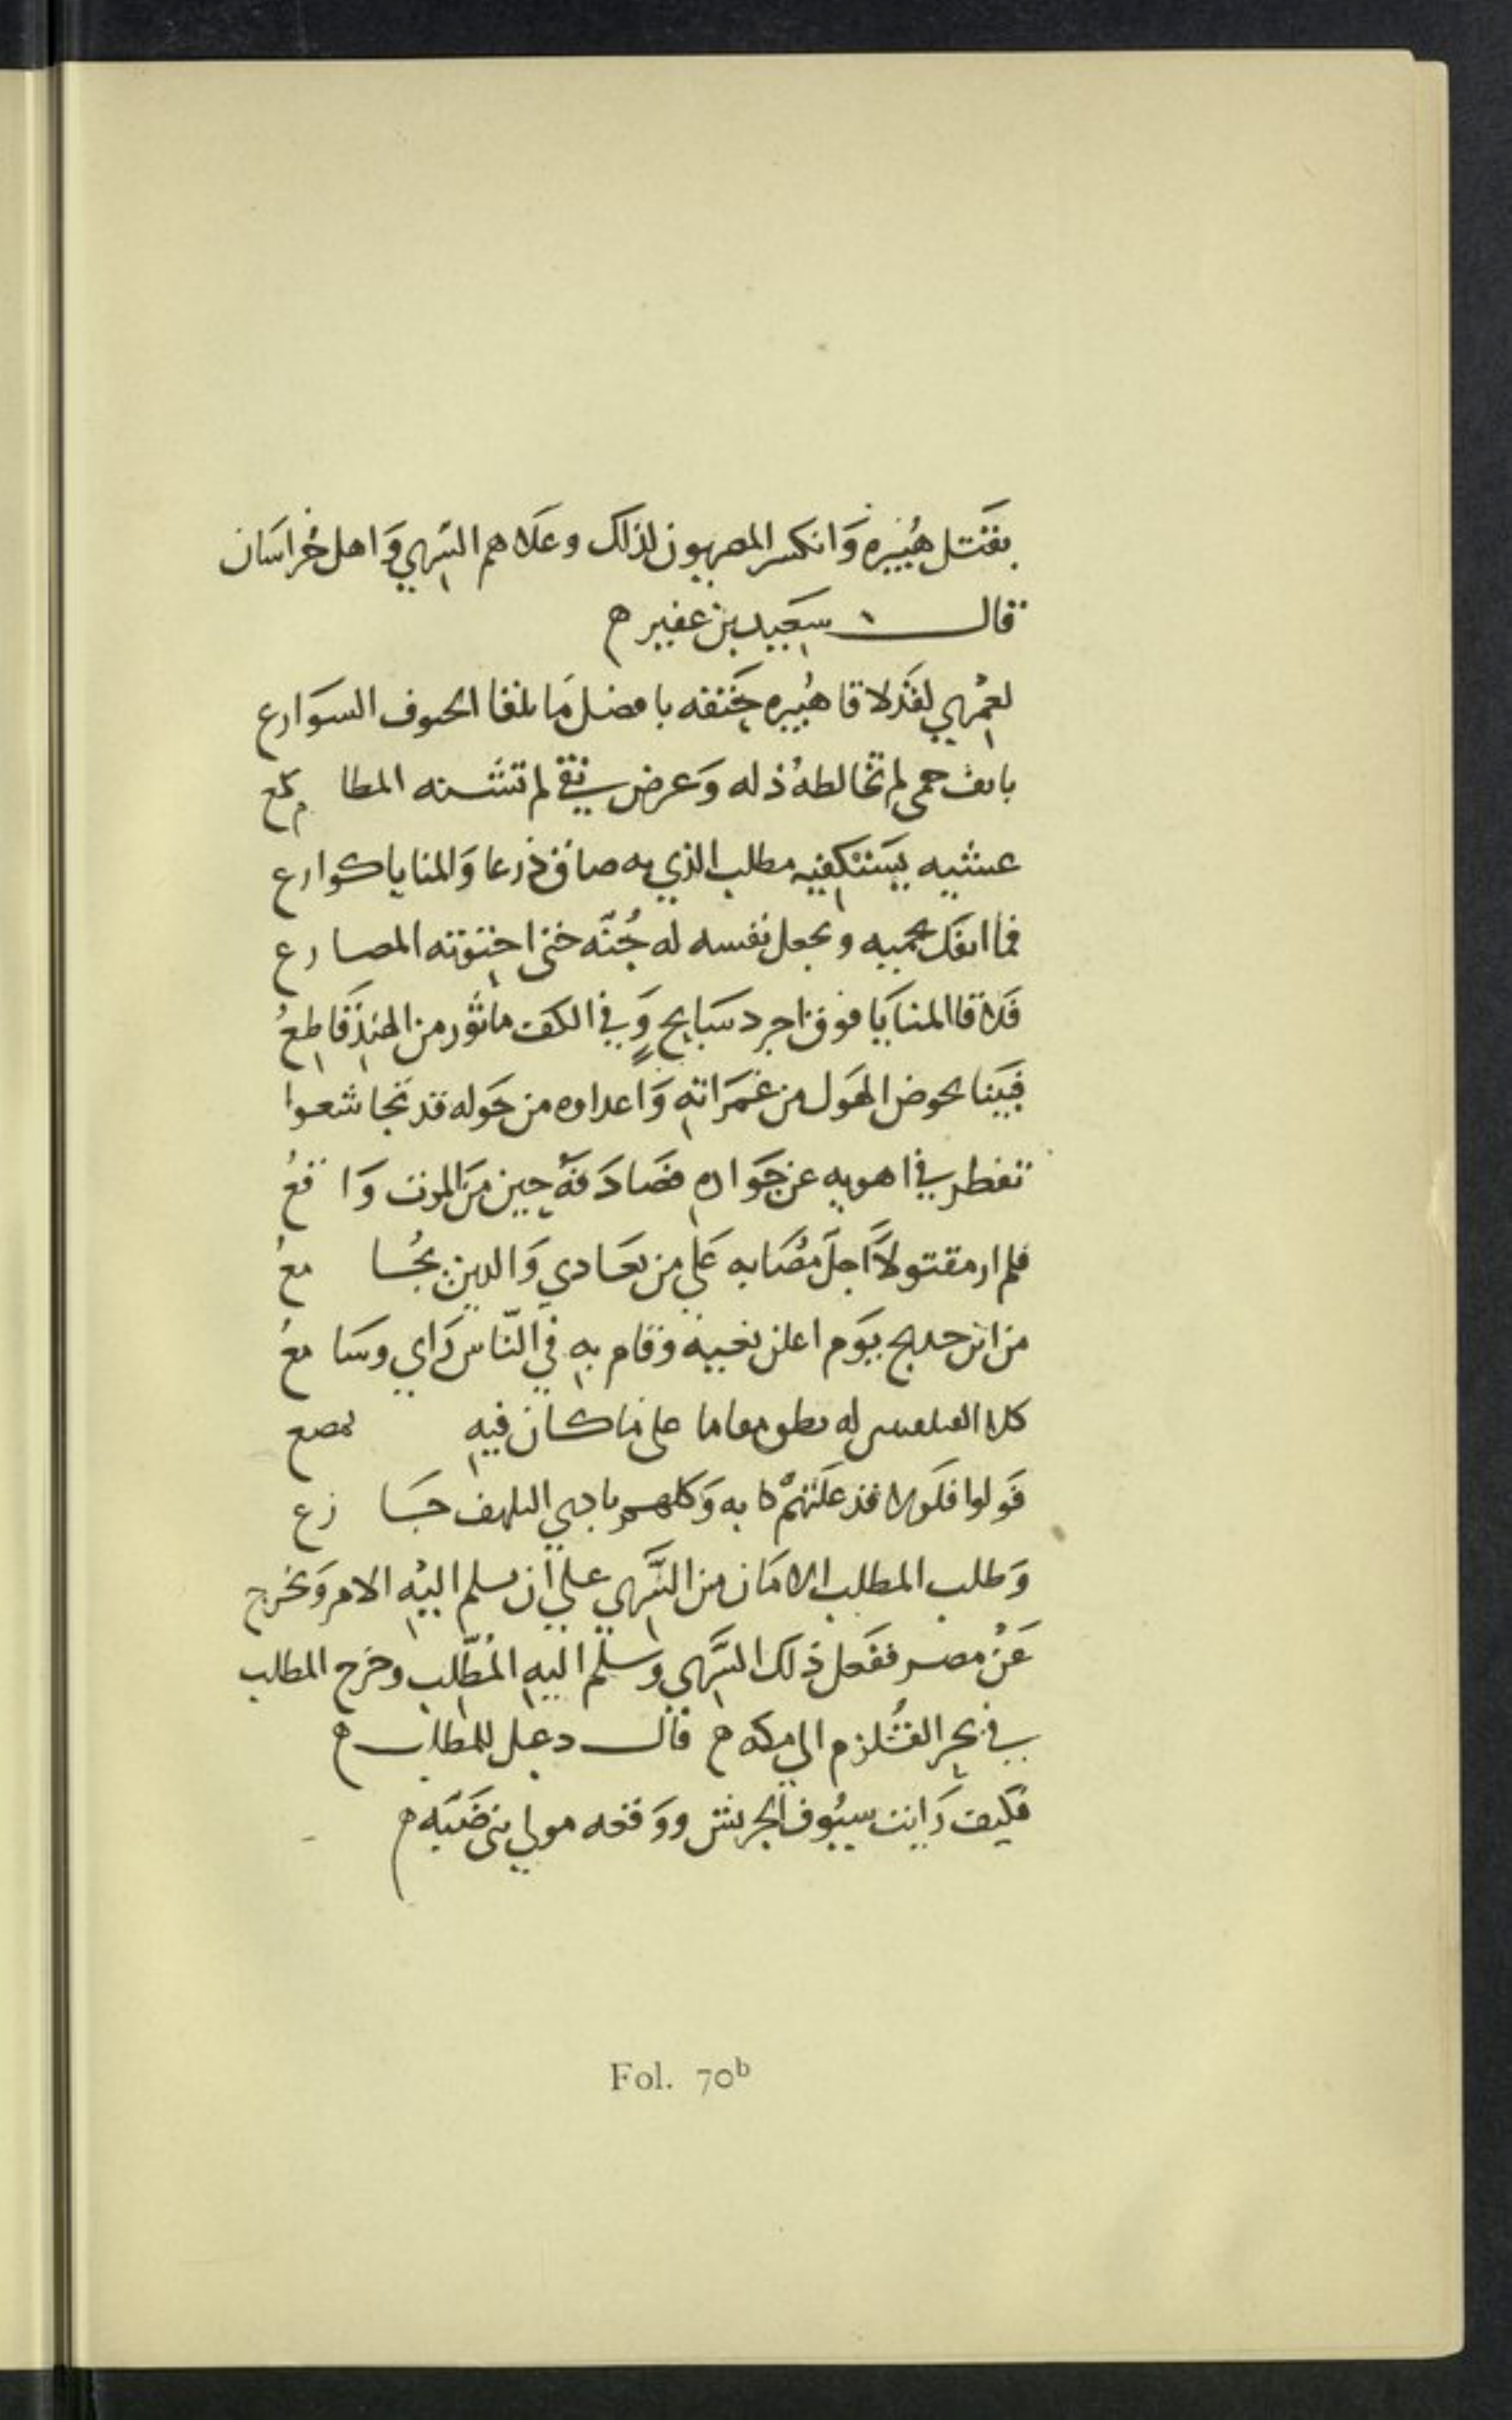 بقَتل هُبَيره وَانكسر المصريون لذلك وعلاهم السَري وَاهل خُراسَان
قال سعَيد بن عفير ه
لعمْري لقَد لاقا هُبَيره حَتفه بافضل مَا يلقا الحتوف السوَارع
بانف حمى لم تخالطهُ ذله وَعرض نقي لم تشنه المطامع
عشيه يستكفيه مطلب الذي به ضاق ذرعا وَالمنايا كوارع
فما انفك يحميه ويجعل نفسه له جُنّه حتى احتوته المصارع
فَلاقا المنايَا فوق اجرد سَابح وَفي الكف ماثور من الهند قَاطعُ
فَبَينا يخوض الهَول من غمَرَاته وَاعداوه من حَوله قد تجاشعوا
تقطر في اهويه عن جَوَاده فصَادَفهُ حين منَ الموت وَاقعُ
فلم ار مقتولاً اجلَ مصَابه عَلى من يعَادي وَالدين يجُامعُ
من ابن حديج يَوم اعلن نعيه وقام به في النّاس رَاي وسَامعُ
كلا له معاما على ما كان فيه
فَولوا فلولا قد علتهمْ كابه وَكلهم بادي التلهف جَازع
وَطلب المطلب الامَان من السَّري علي ان يسلم اليْه الامر وَيخرج
عَنْ مصر ففعَل ذلك السَّري وسلّم اليه المُطّلب وخرج المطلب
في بحر القُلزم الي مكه ه قال دعبل للمطلب ه
فكيف رَايت سيُوف الحريش ووَقعه مولي بني ضَبَه ه
Fol. 70b